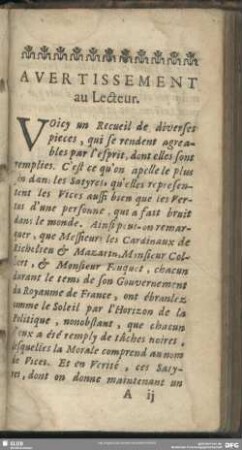 AVERTISSEMENT
au Lecteur.
VOicy un Recueil de diverses
pieces, qui se rendent agrea-
bles par l'esprit, dont elles sont
remplies. C'est ce qu'on apelle le plus
dans les Satyres, qu'elles represen-
tent les Vices aussi bien que les Ver-
tus d'une personne, qui a fait bruit
dans le monde. Ainsi peut-on remar-
quer, que Messieurs les Cardinaux de
Richelieu & Mazarin, Monsieur Col-
bert, & Monsieur Fouquet, chacun
durant le tems de son Gouvernement
du Royaume de France, ont ébranlez
comme le Soleil par l'Horizon de la
Politique, nonobstant, que chacun
d'eux a été remply de tâches noires,
lesquelles la Morale comprend au nom
de Vices. Et en Verité, ces Saty-
res, dont on donne maintenant un
A ij
SLUB
DFG